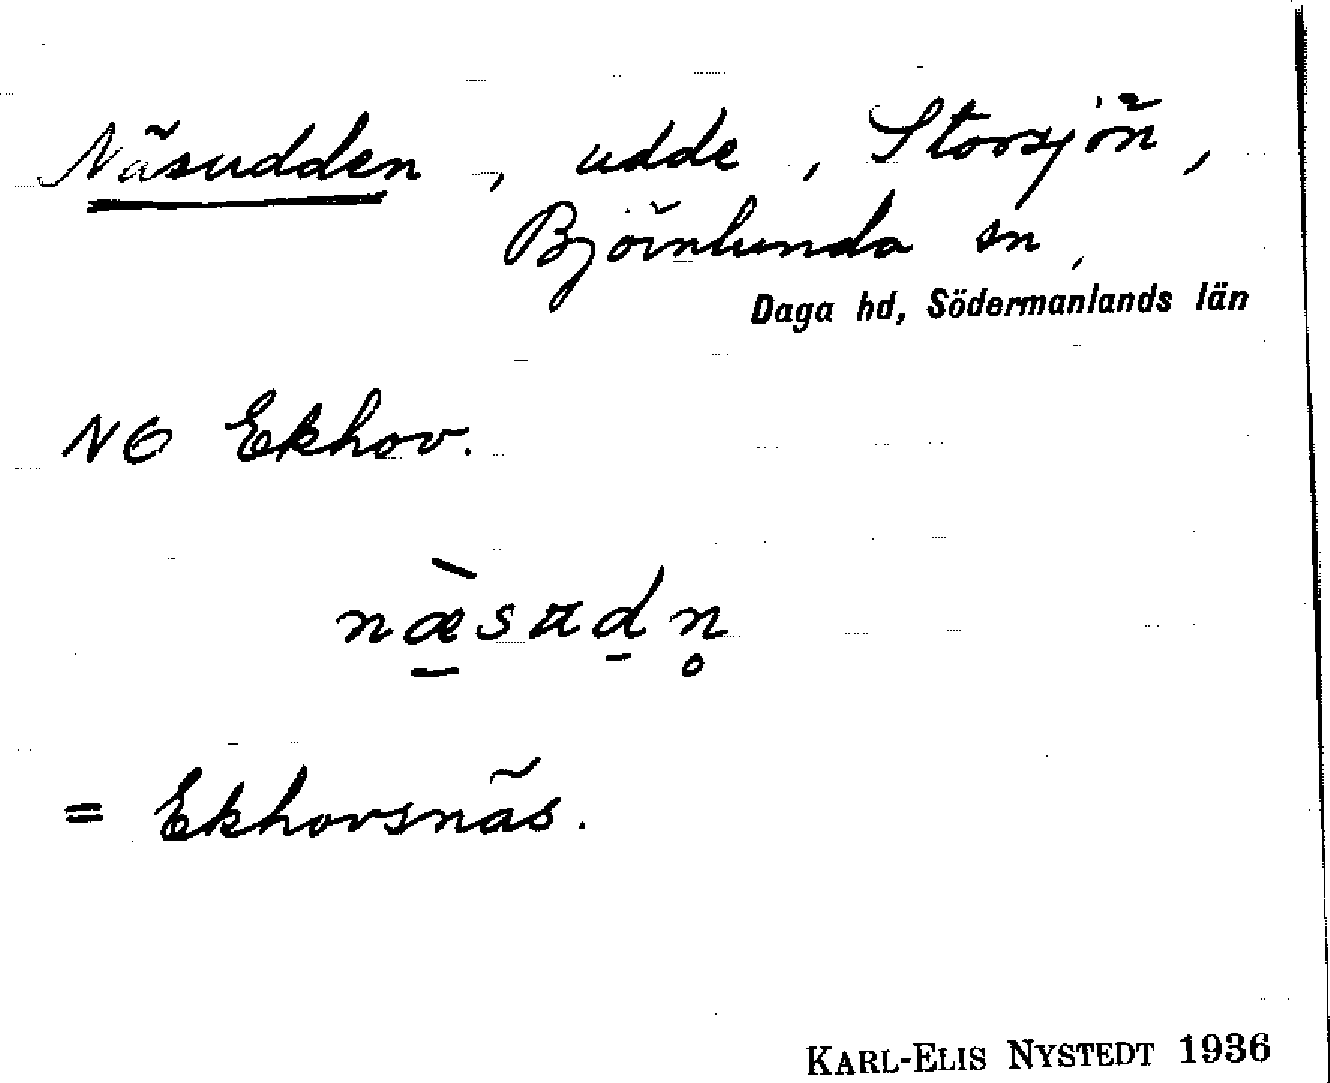 Näsudden, udde, Storsjön,
Björnlunda sn,
Daga hd, Södermanlands län
NO Ekhov.
næ̱̀sɷḏn̥
= Ekhovsnäs.
KARL-ELIS NYSTEDT 1936